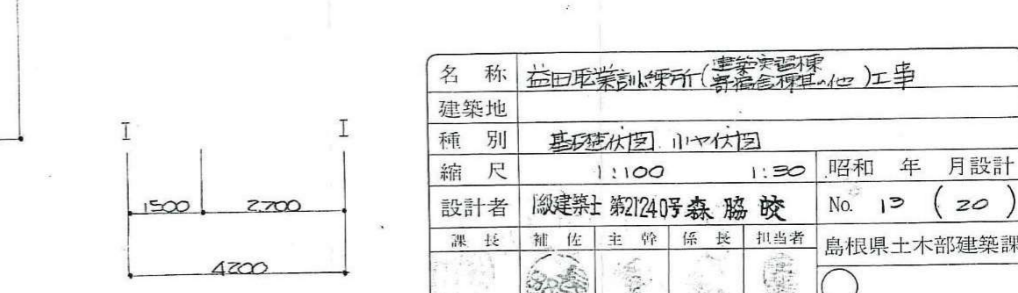 I I
1500 2.700
4200
名 称 益田職業訓練所(建築実習棟 寄宿舎棟其の他)工事
建築地
種 別 基礎伏図 小ヤ伏図
縮 尺 1:100 1:30 昭和 年 月設計
設計者 1級建築士 第21240号 森 脇 皎 No. 13 (20)
課 長 補 佐 主 幹 係 長 担当者 島根県土木部建築課